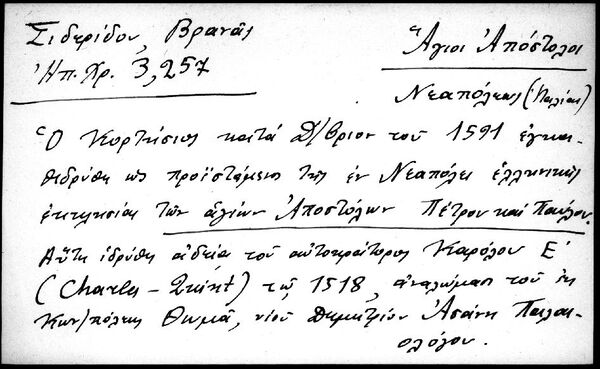 Σιδερίδου, Βρανᾶς
Ἠπ. Χρ. 3, 257
Ἅγιοι Ἀπόστολοι
Νεαπόλεως (Ἰταλίας)
Ὁ Κορτήσιος κατά Δ/βριον τοῦ 1591 ἐγκα-
θιδρύθη ὡς προϊστάμενος τῆς ἐν Νεαπόλει ἑλληνικῆς
ἐκκλησίας τῶν ἁγίων Ἀποστόλων Πέτρου καί Παύλου.
Αὕτη ἱδρύθη ἀδείᾳ τοῦ αὐτοκράτορος Καρόλου Ε΄
(Charles - Quint) τῷ 1518, ἀναλώμασι τοῦ ἐκ
Κων/πόλεως Θωμᾶ, υἱοῦ Δημητρίου Ἀσάνη Παλαι-
ολόγου.